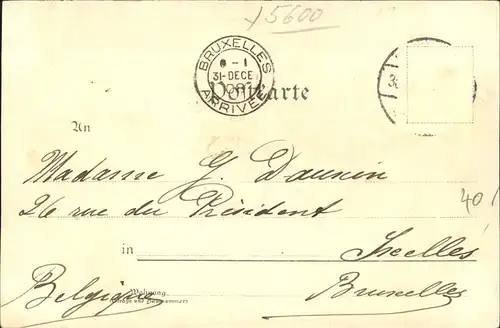 5600
BRUXELLES
8 - 1
31-DECE
ARRIVEE
Postkarte
An
Madame G. Dausin
40
26 rue du Président
in Ixelles
Wohnung
(Straße und Hausnummer)
Belgique Bruxelles